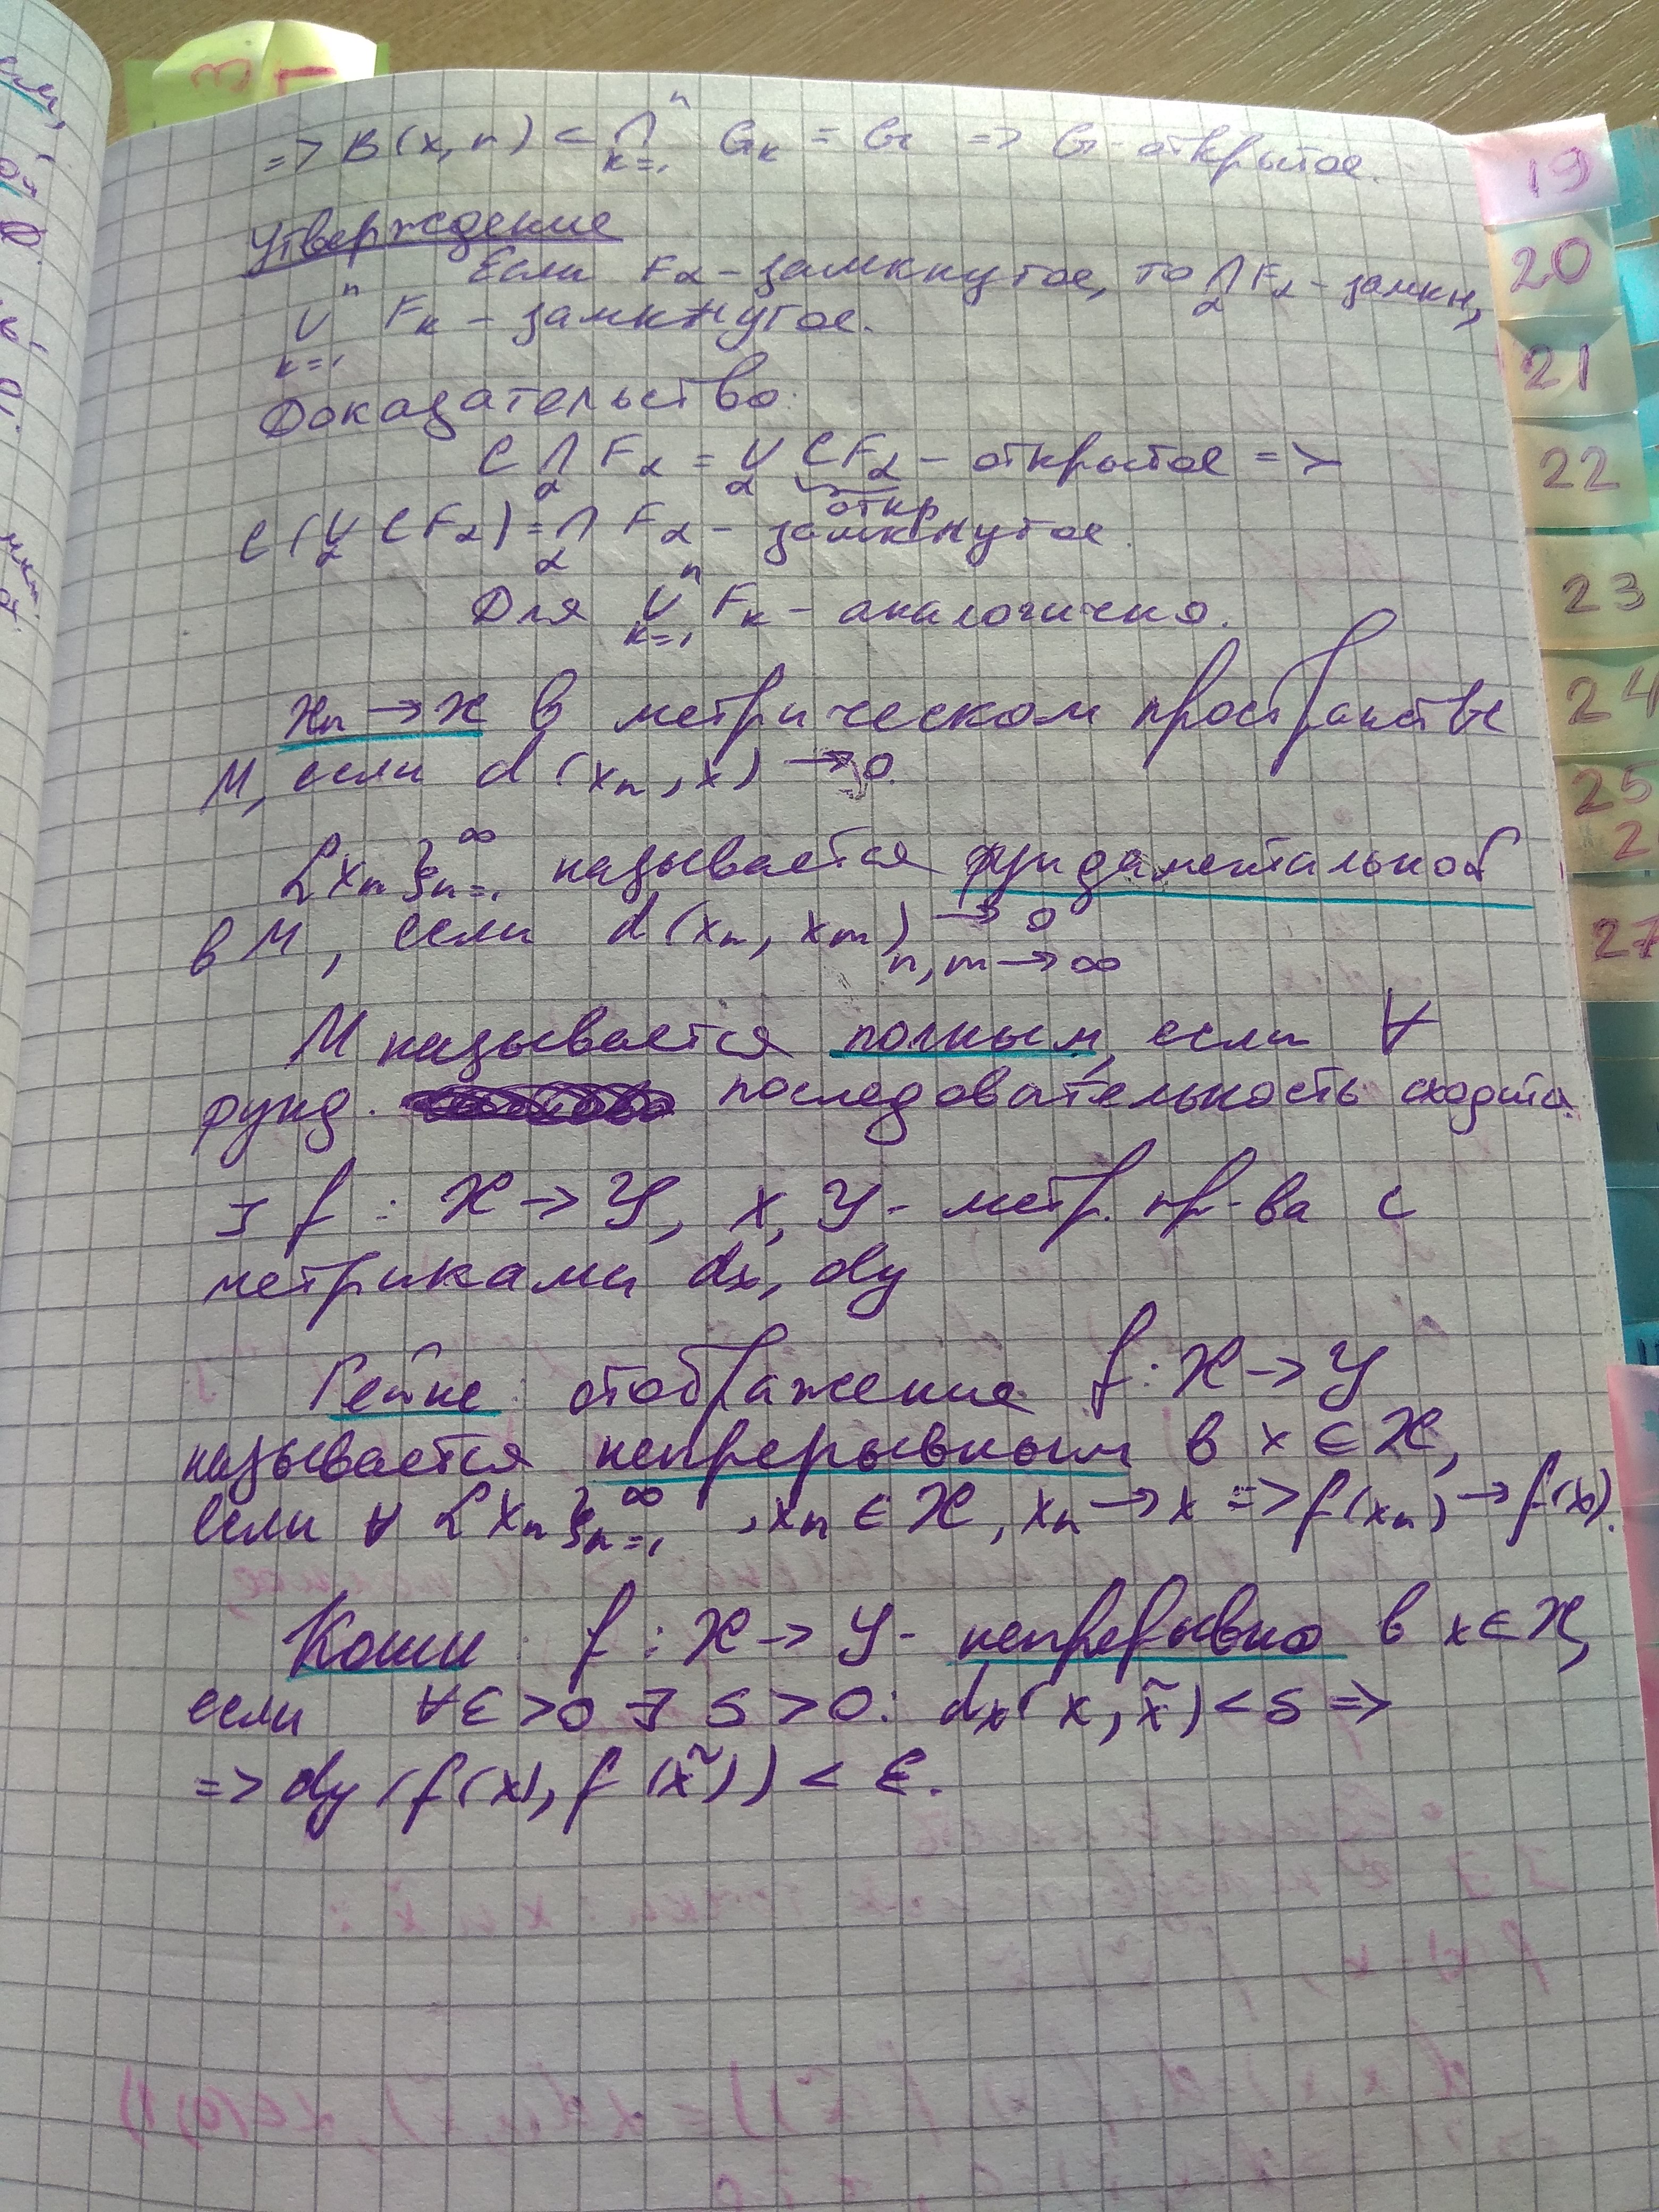 3
19
20
21
22
23
24
25
2
27
=> B(x, r) ⊂ ⋂_{k=1}^{n} G_k = G => G - открытое.
Утверждение
Если F_α - замкнутое, то ⋂_α F_α - замкн,
⋃_{k=1}^{n} F_k - замкнутое.
Доказательство:
C ⋂_α F_α = ⋃_α CF_α - открытое =>
откр
C(⋃_α CF_α) = ⋂_α F_α - замкнутое.
Для ⋃_{k=1}^{n} F_k - аналогично.
x_n → x в метрическом пространстве
M, если d(x_n, x) → 0.
{x_n}_{n=1}^{∞} называется фундаментальной
в M, если d(x_n, x_m) → 0
n, m → ∞
M называется полным, если ∀
фунд. последовательность сходится.
] f : X → Y, X, Y - метр. пр-ва с
метриками d_x, d_y
Гейне: отображение f : X → Y
называется непрерывным в x ∈ X,
если ∀ {x_n}_{n=1}^{∞}, x_n ∈ X, x_n → x => f(x_n) → f(x).
Коши: f : X → Y - непрерывно в x ∈ X,
если ∀ε > 0 ∃ δ > 0: d_x(x, x̃) < δ =>
=> d_y(f(x), f(x̃)) < ε.